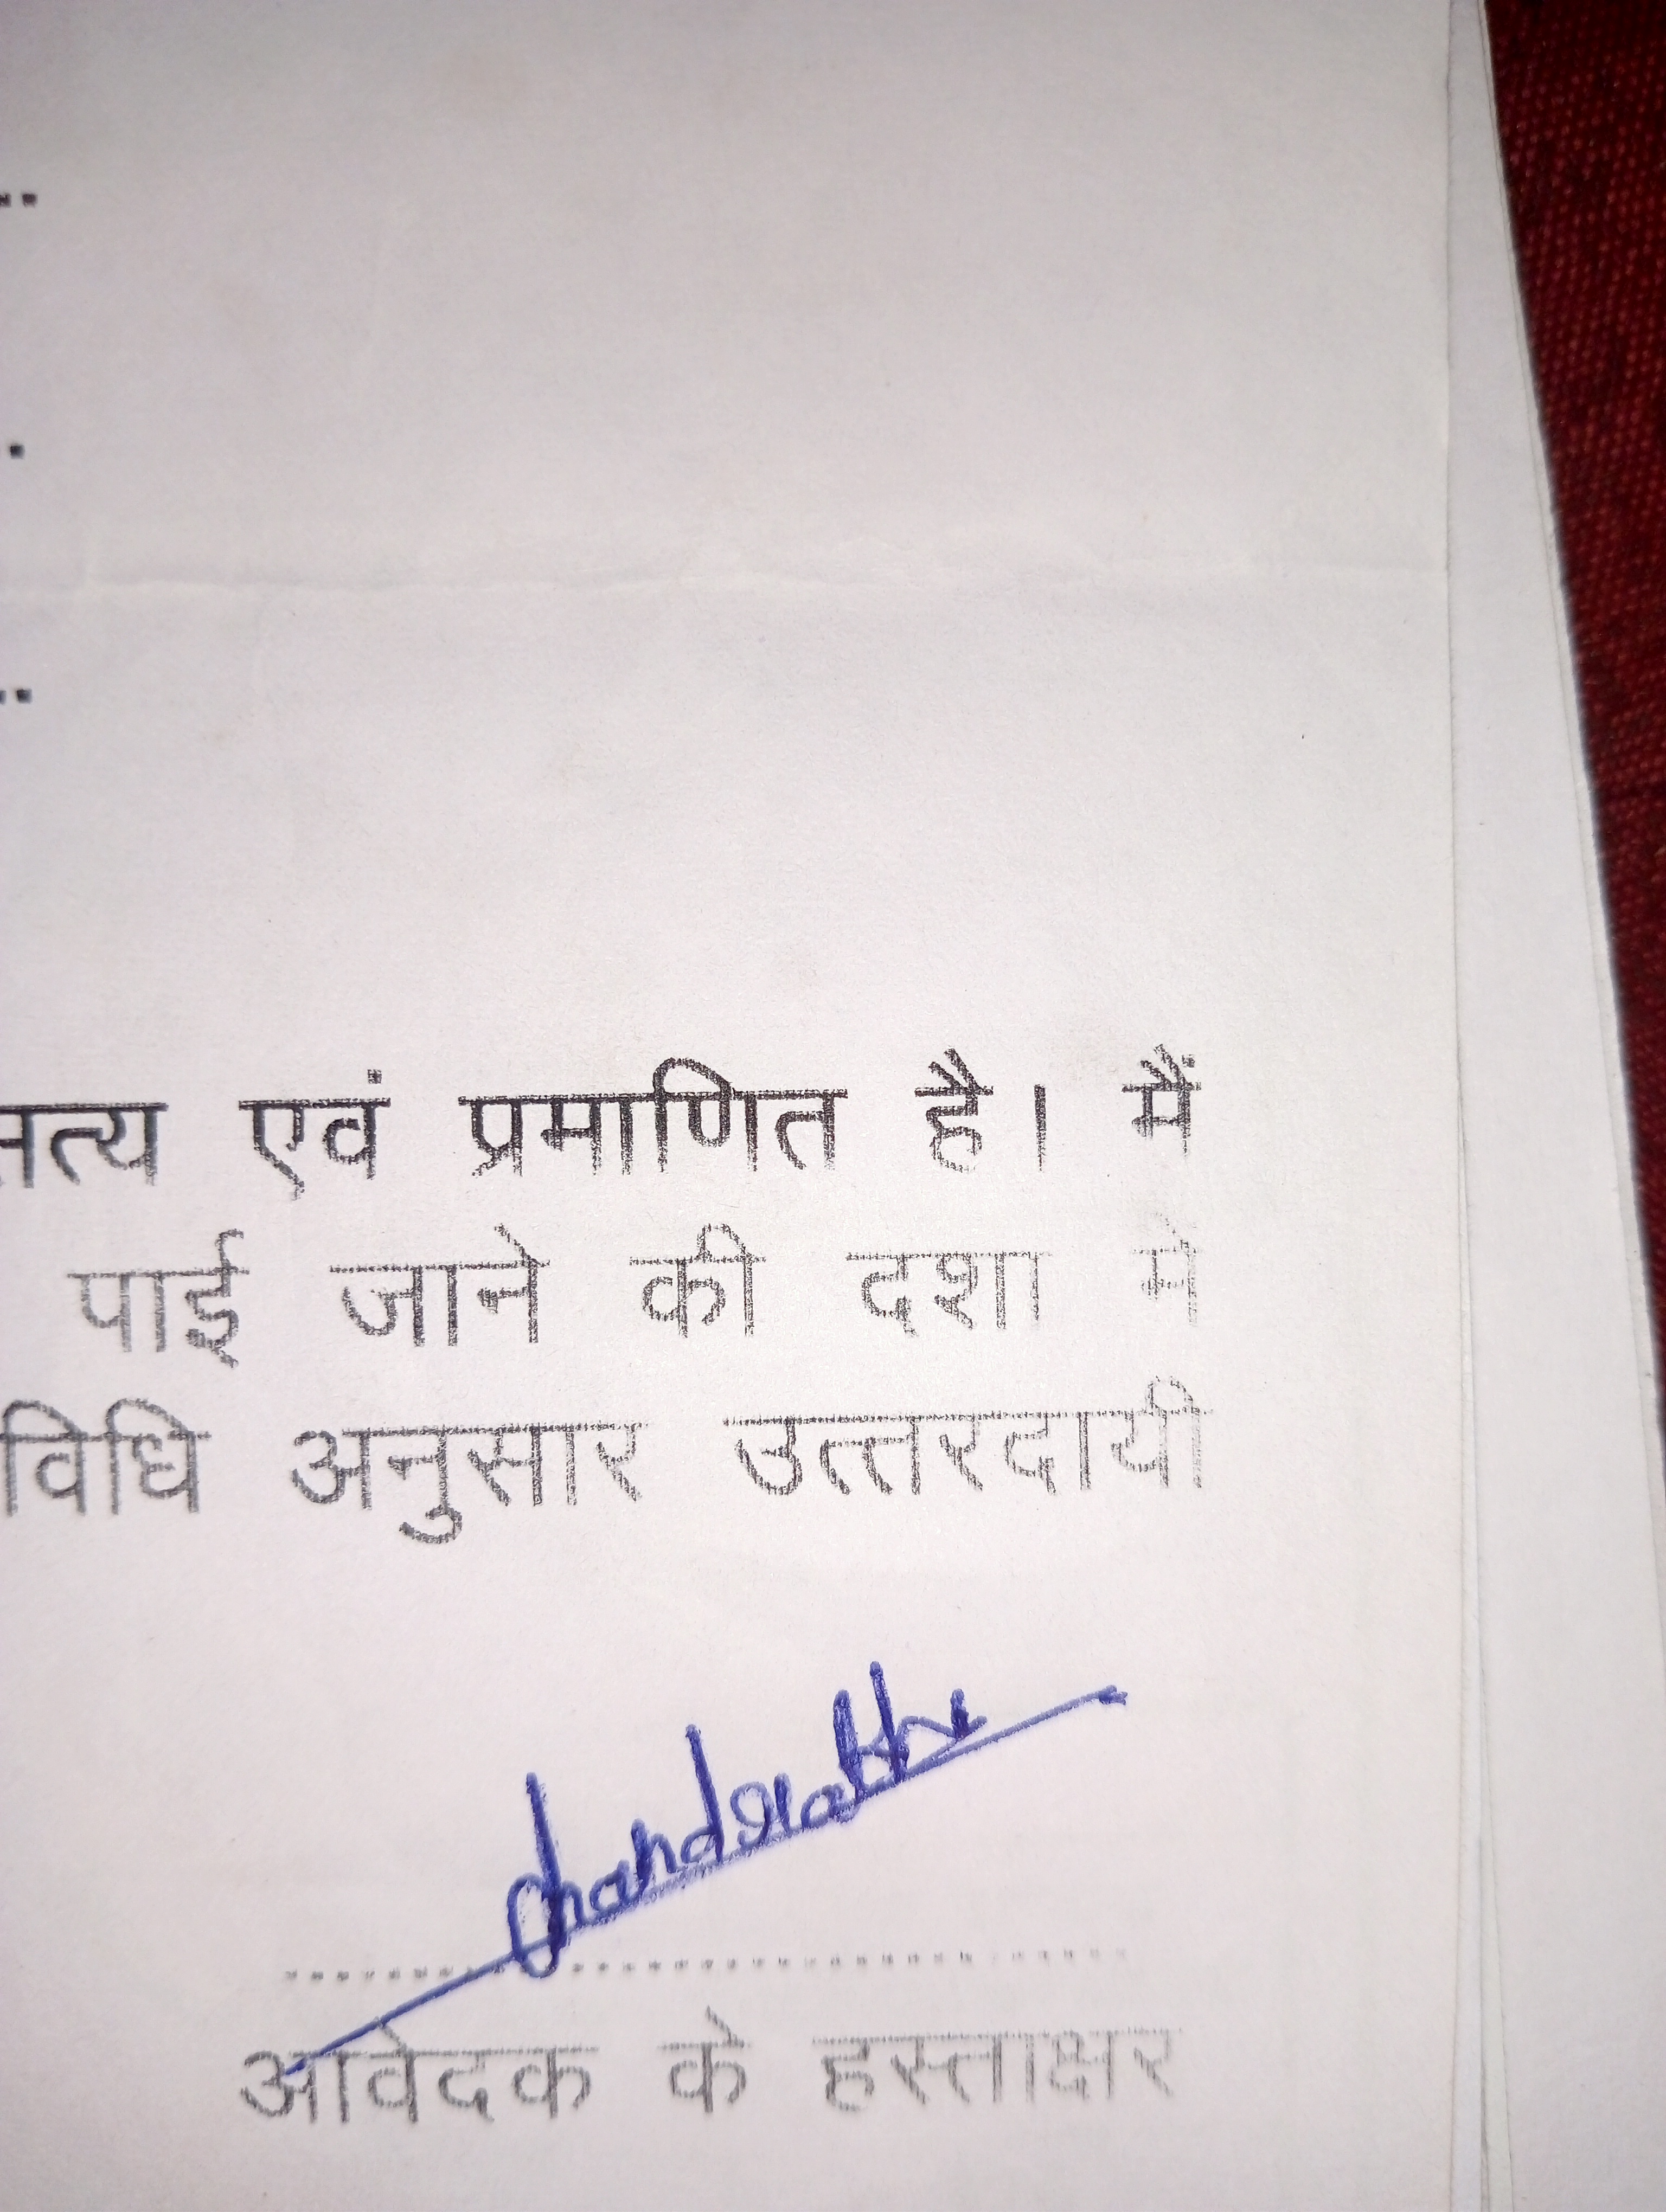 ..
.
..
सत्य एवं प्रमाणित है। मैं
पाई जाने की दशा में
विधि अनुसार उत्तरदायी
..........................................
आवेदक के हस्ताक्षर